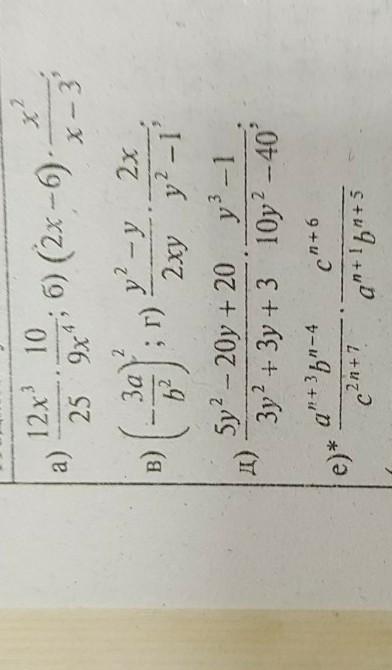 а) 12x³/25 · 10/9x⁴; б) (2x − 6) · x²/x − 3;
в) (−3a/b²)²; г) y² − y/2xy · 2x/y² − 1;
д) 5y² − 20y + 20/3y² + 3y + 3 · y³ − 1/10y² − 40;
е)* aⁿ⁺³bⁿ⁻⁴/c²ⁿ⁺⁷ · cⁿ⁺⁶/aⁿ⁺¹bⁿ⁺⁵